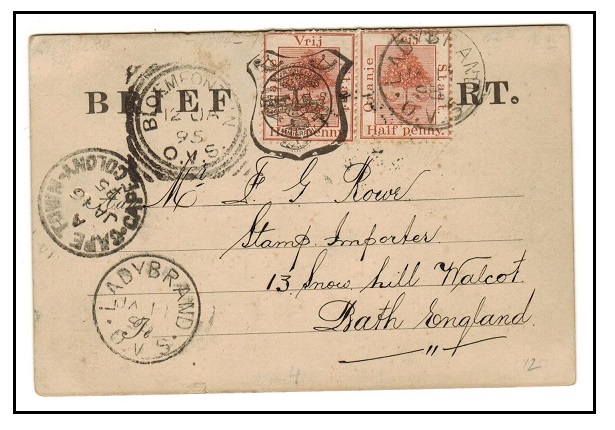 Vrij Vrij
Oranje Staat
BRIEF RT.
Half penny. Half penny.
BLOEMFONTEIN
12 JA
95
O.V.S.
LADYBRAND
O.V.S.
CAPE TOWN · CAPE COLONY
A
JA 16
95
LADYBRAND.
O.V.S.
Mr F G Rowe
Stamp Importer
13 Snow hill Walcot
Bath England
12